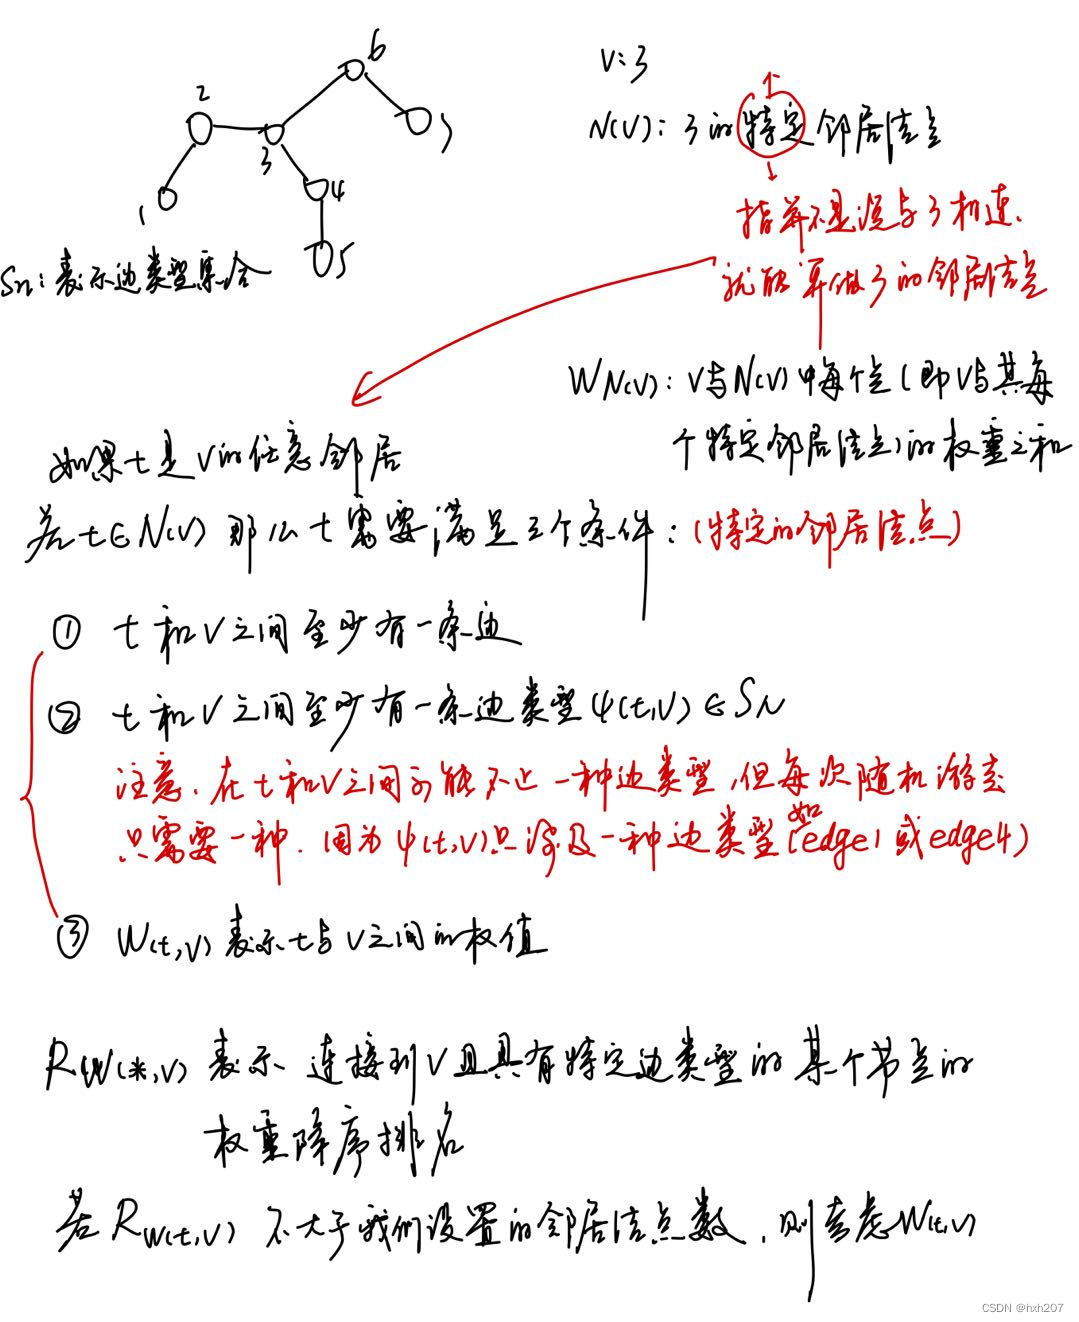 6
2
3
7
1
4
5
V:3
N(V):3的特定邻居结点
指并不是说与3相连.
就能算做3的邻居结点
Sn:表示边类型集合
W N(V):V与N(V)中每个点(即V与其每
个特定邻居结点)的权重之和
如果t是V的任意邻居
若t∈N(V)那么t需要满足三个条件:(特定的邻居结点)
① t和V之间至少有一条边
② t和V之间至少有一条边类型ψ(t,V)∈SN
注意.在t和V之间可能不止一种边类型,但每次随机游走
只需要一种.因为ψ(t,V)只涉及一种边类型(如edge1或edge4)
③ W(t,V)表示t与V之间的权值
RW(*,V)表示连接到V且具有特定边类型的某个节点的
权重降序排名
若RW(t,V)不大于我们设置的邻居结点数,则考虑W(t,V)
CSDN @hxh207